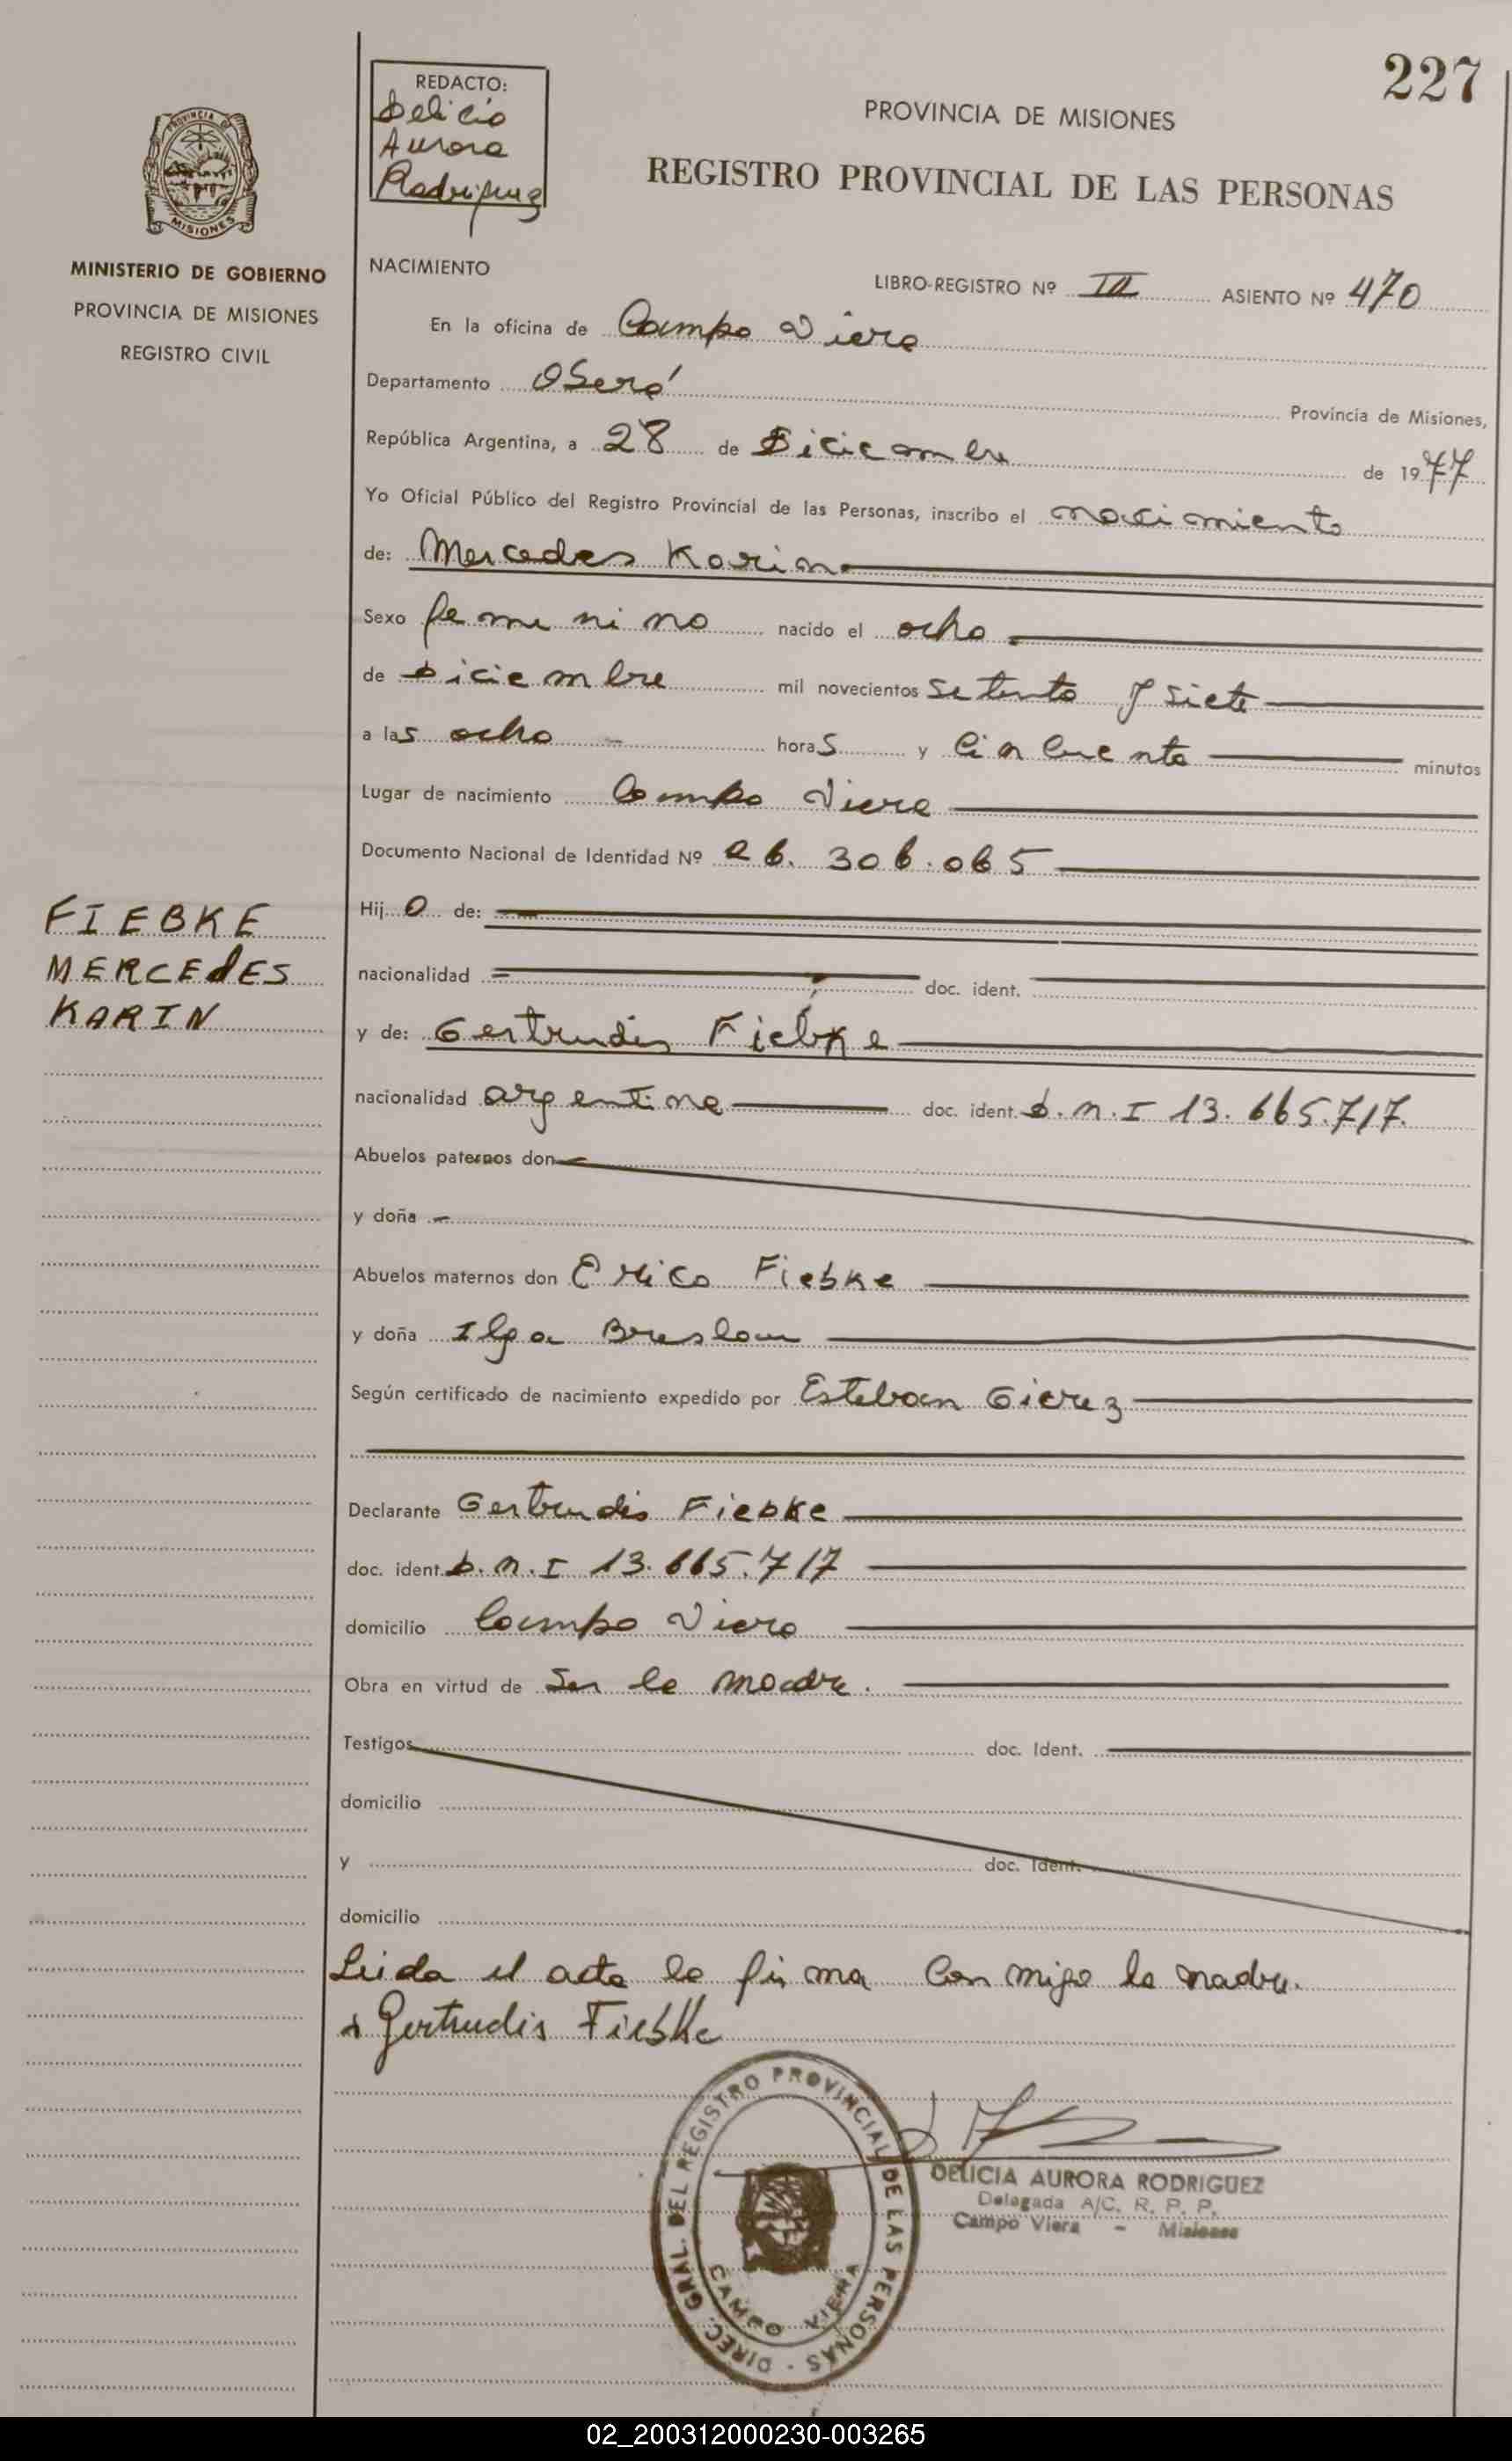 227
REDACTO:
Delicia
Aurora
Rodriguez
PROVINCIA DE MISIONES
REGISTRO PROVINCIAL DE LAS PERSONAS
PROVINCIA DE
MISIONES
MINISTERIO DE GOBIERNO
PROVINCIA DE MISIONES
REGISTRO CIVIL
NACIMIENTO
LIBRO-REGISTRO Nº III ASIENTO Nº 470
En la oficina de Campo Viera
Departamento Oberá Provincia de Misiones,
República Argentina, a 28 de Diciembre de 1977
Yo Oficial Público del Registro Provincial de las Personas, inscribo el nacimiento
de: Mercedes Karin
Sexo femenino nacido el ocho
de Diciembre mil novecientos setenta y siete
a las ocho horas y cincuenta minutos
Lugar de nacimiento Campo Viera
Documento Nacional de Identidad Nº 26.306.065
Hij o de:
nacionalidad doc. ident.
FIEBKE
MERCEdES
KARIN
y de: Gertrudis Fiebke
nacionalidad argentina doc. ident. D.n.I 13.665.717.
Abuelos paternos don
y doña
Abuelos maternos don Erico Fiebke
y doña Ilga Breslau
Según certificado de nacimiento expedido por Esteban
Declarante Gertrudis Fiebke
doc. ident. D.n.I 13.665.717
domicilio Campo Viera
Obra en virtud de Ser la madre.
Testigos doc. Ident.
domicilio
y doc. Ident.
domicilio
Leida el acta la firma conmigo la madre.
Gertrudis Fiebke
DIREC. GRAL. DEL REGISTRO PROVINCIAL DE LAS PERSONAS -
CAMPO VIERA
DELICIA AURORA RODRIGUEZ
Delegada A/C. R. P. P.
Campo Viera - Misiones
02_200312000230-003265